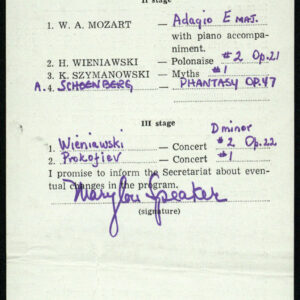 II stage
1. W. A. MOZART — Adagio E MAJ.
with piano accompa-
niment.
2. H. WIENIAWSKI — Polonaise #2 Op.21
3. K. SZYMANOWSKI — Myths #1
A. 4. SCHOENBERG — PHANTASY OP.47
III stage
D minor
1. Wieniawski — Concert #2 Op.22
2. Prokofiev — Concert #1
I promise to inform the Secretariat about even-
tual changes in the program.
Mary Lou Speaker
(signature)